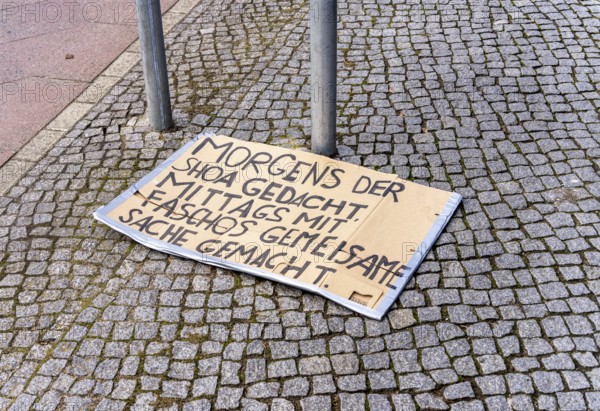 MORGENS DER
SHOA GEDACHT.
MITTAGS MIT
FASCHOS GEMEISAME
SACHE GEMACHT.